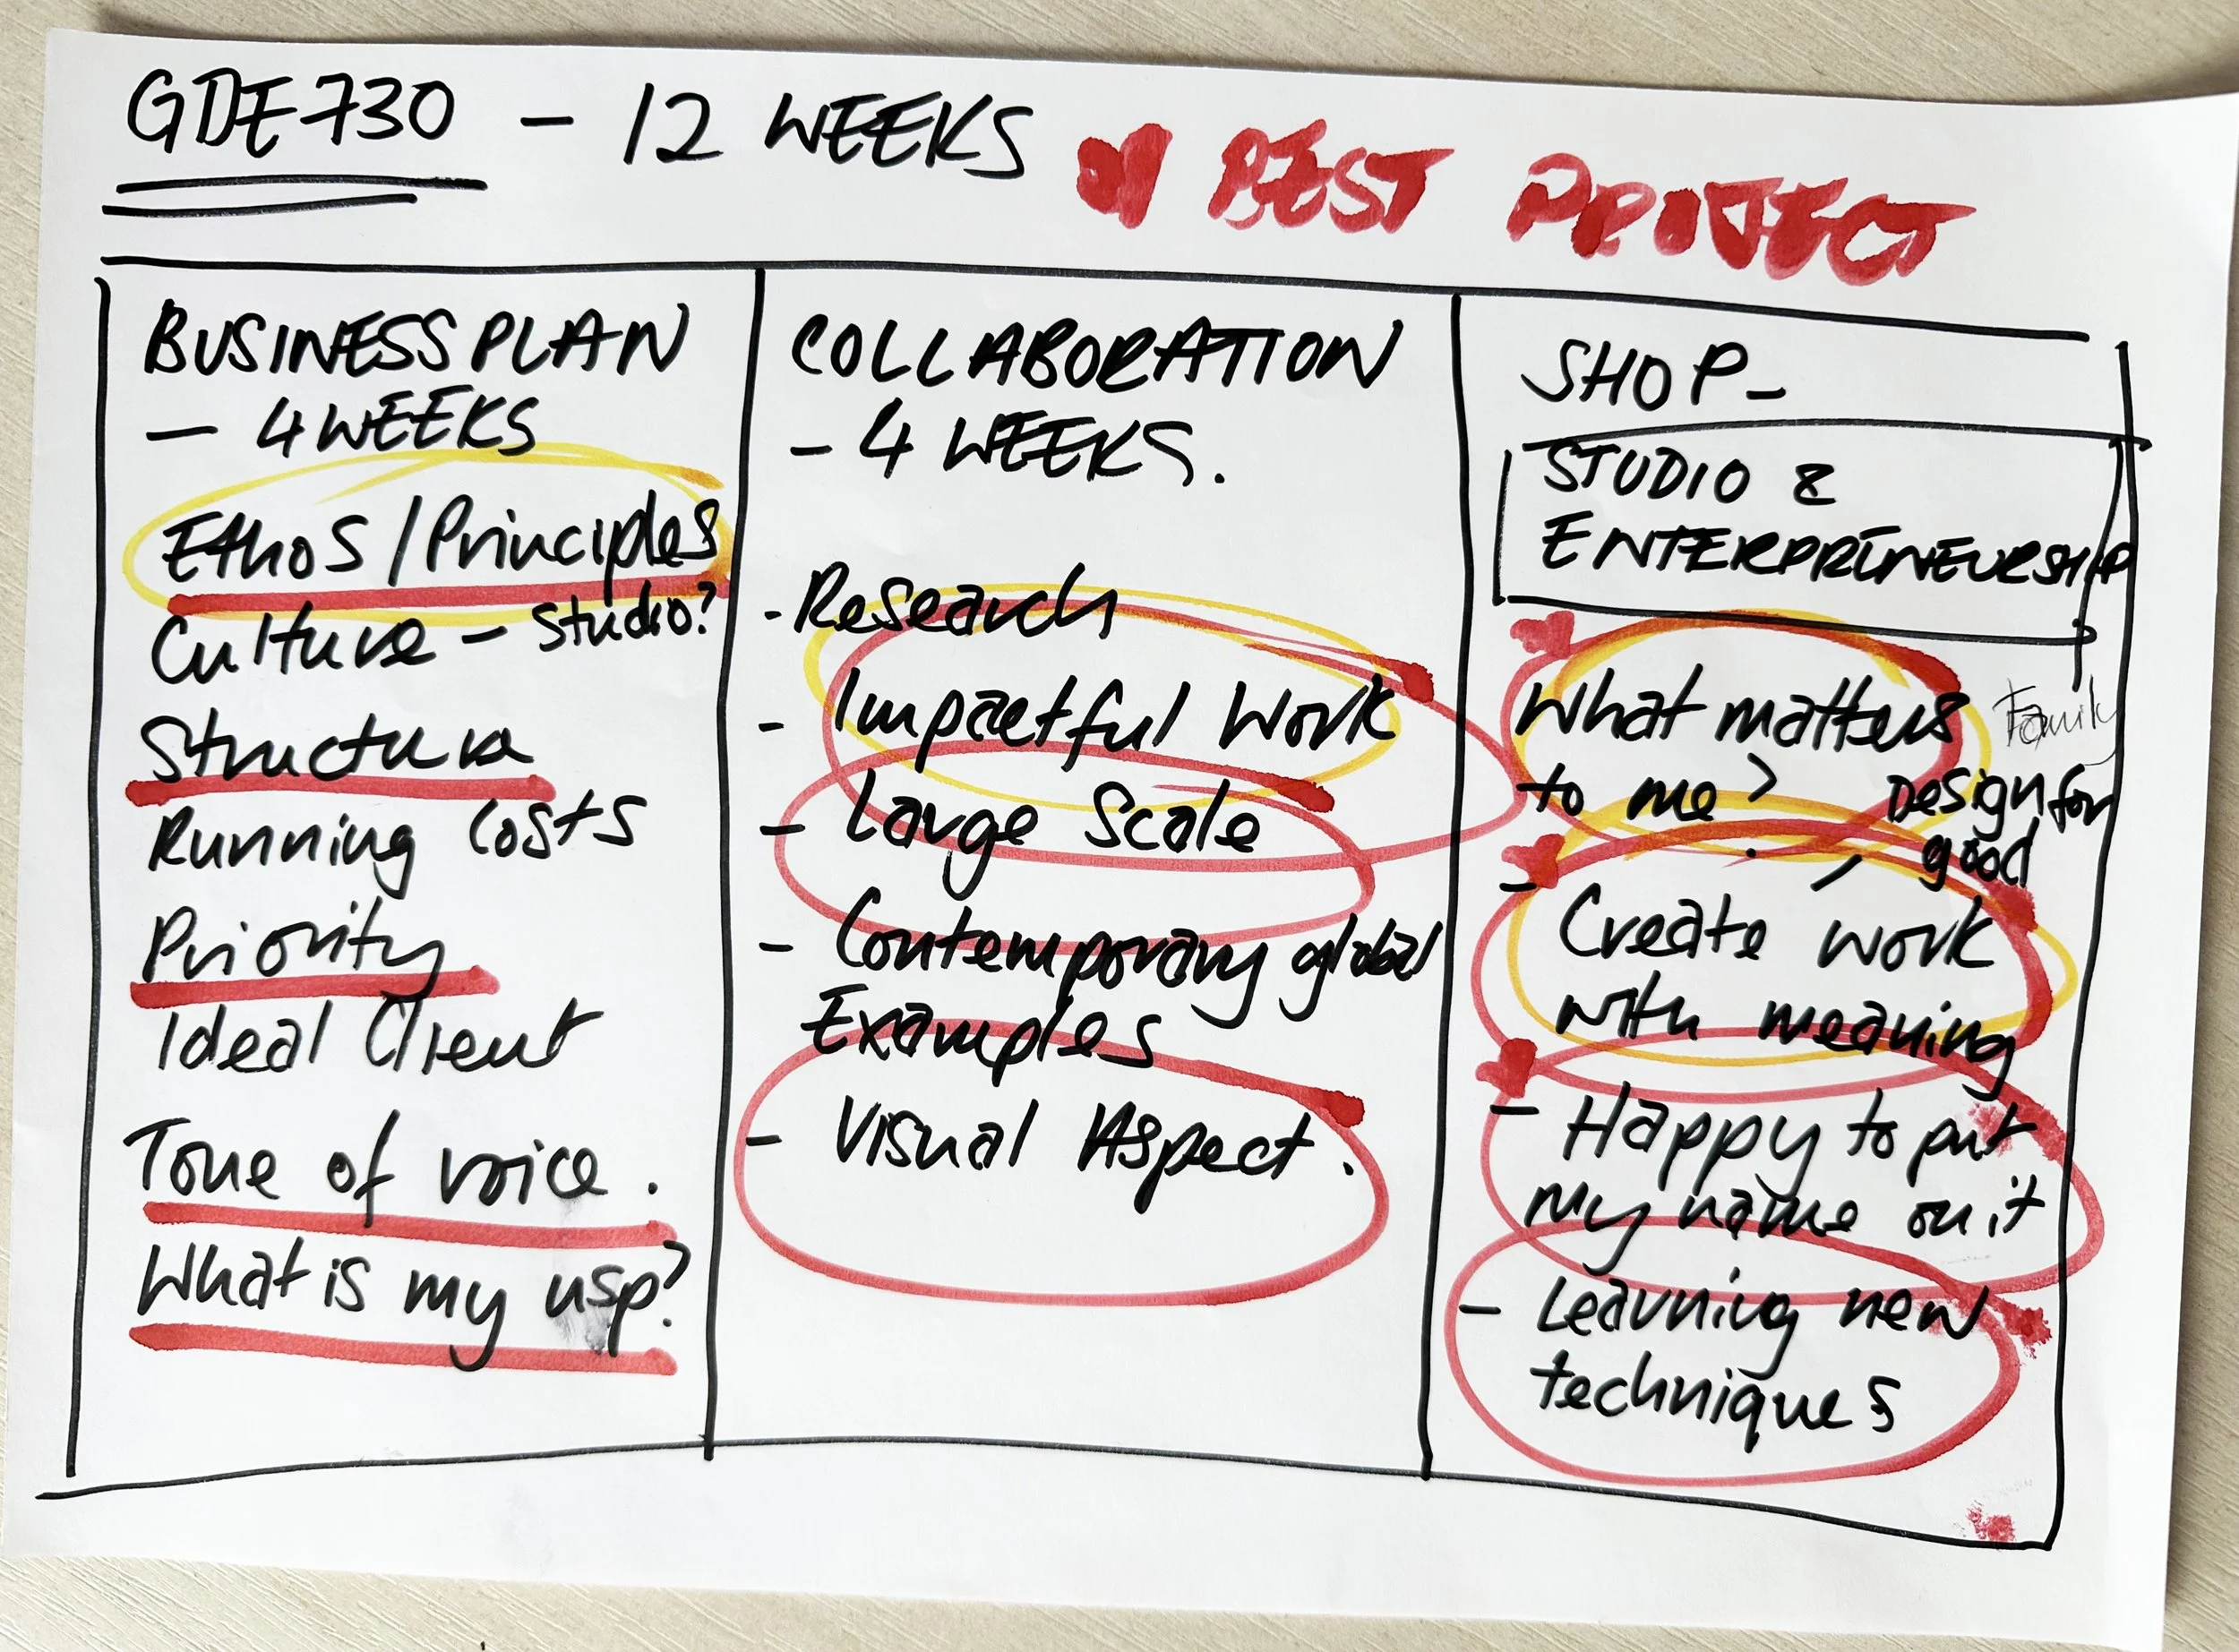 GDE730 - 12 WEEKS
BEST PROJECT
BUSINESS PLAN
- 4 WEEKS
Ethos / Principles
Culture - Studio?
Structure
Running Costs
Priority
Ideal Client
Tone of voice.
What is my usp?
COLLABORATION
- 4 WEEKS.
- Research
- Impactful Work
- Large Scale
- Contemporary global
Examples
- Visual Aspect.
SHOP -
STUDIO &
ENTERPRENEURSHIP
What matters
to me?
Family
Design for
good
- Create work
with meaning
- Happy to put
my name on it
- Learning new
techniques